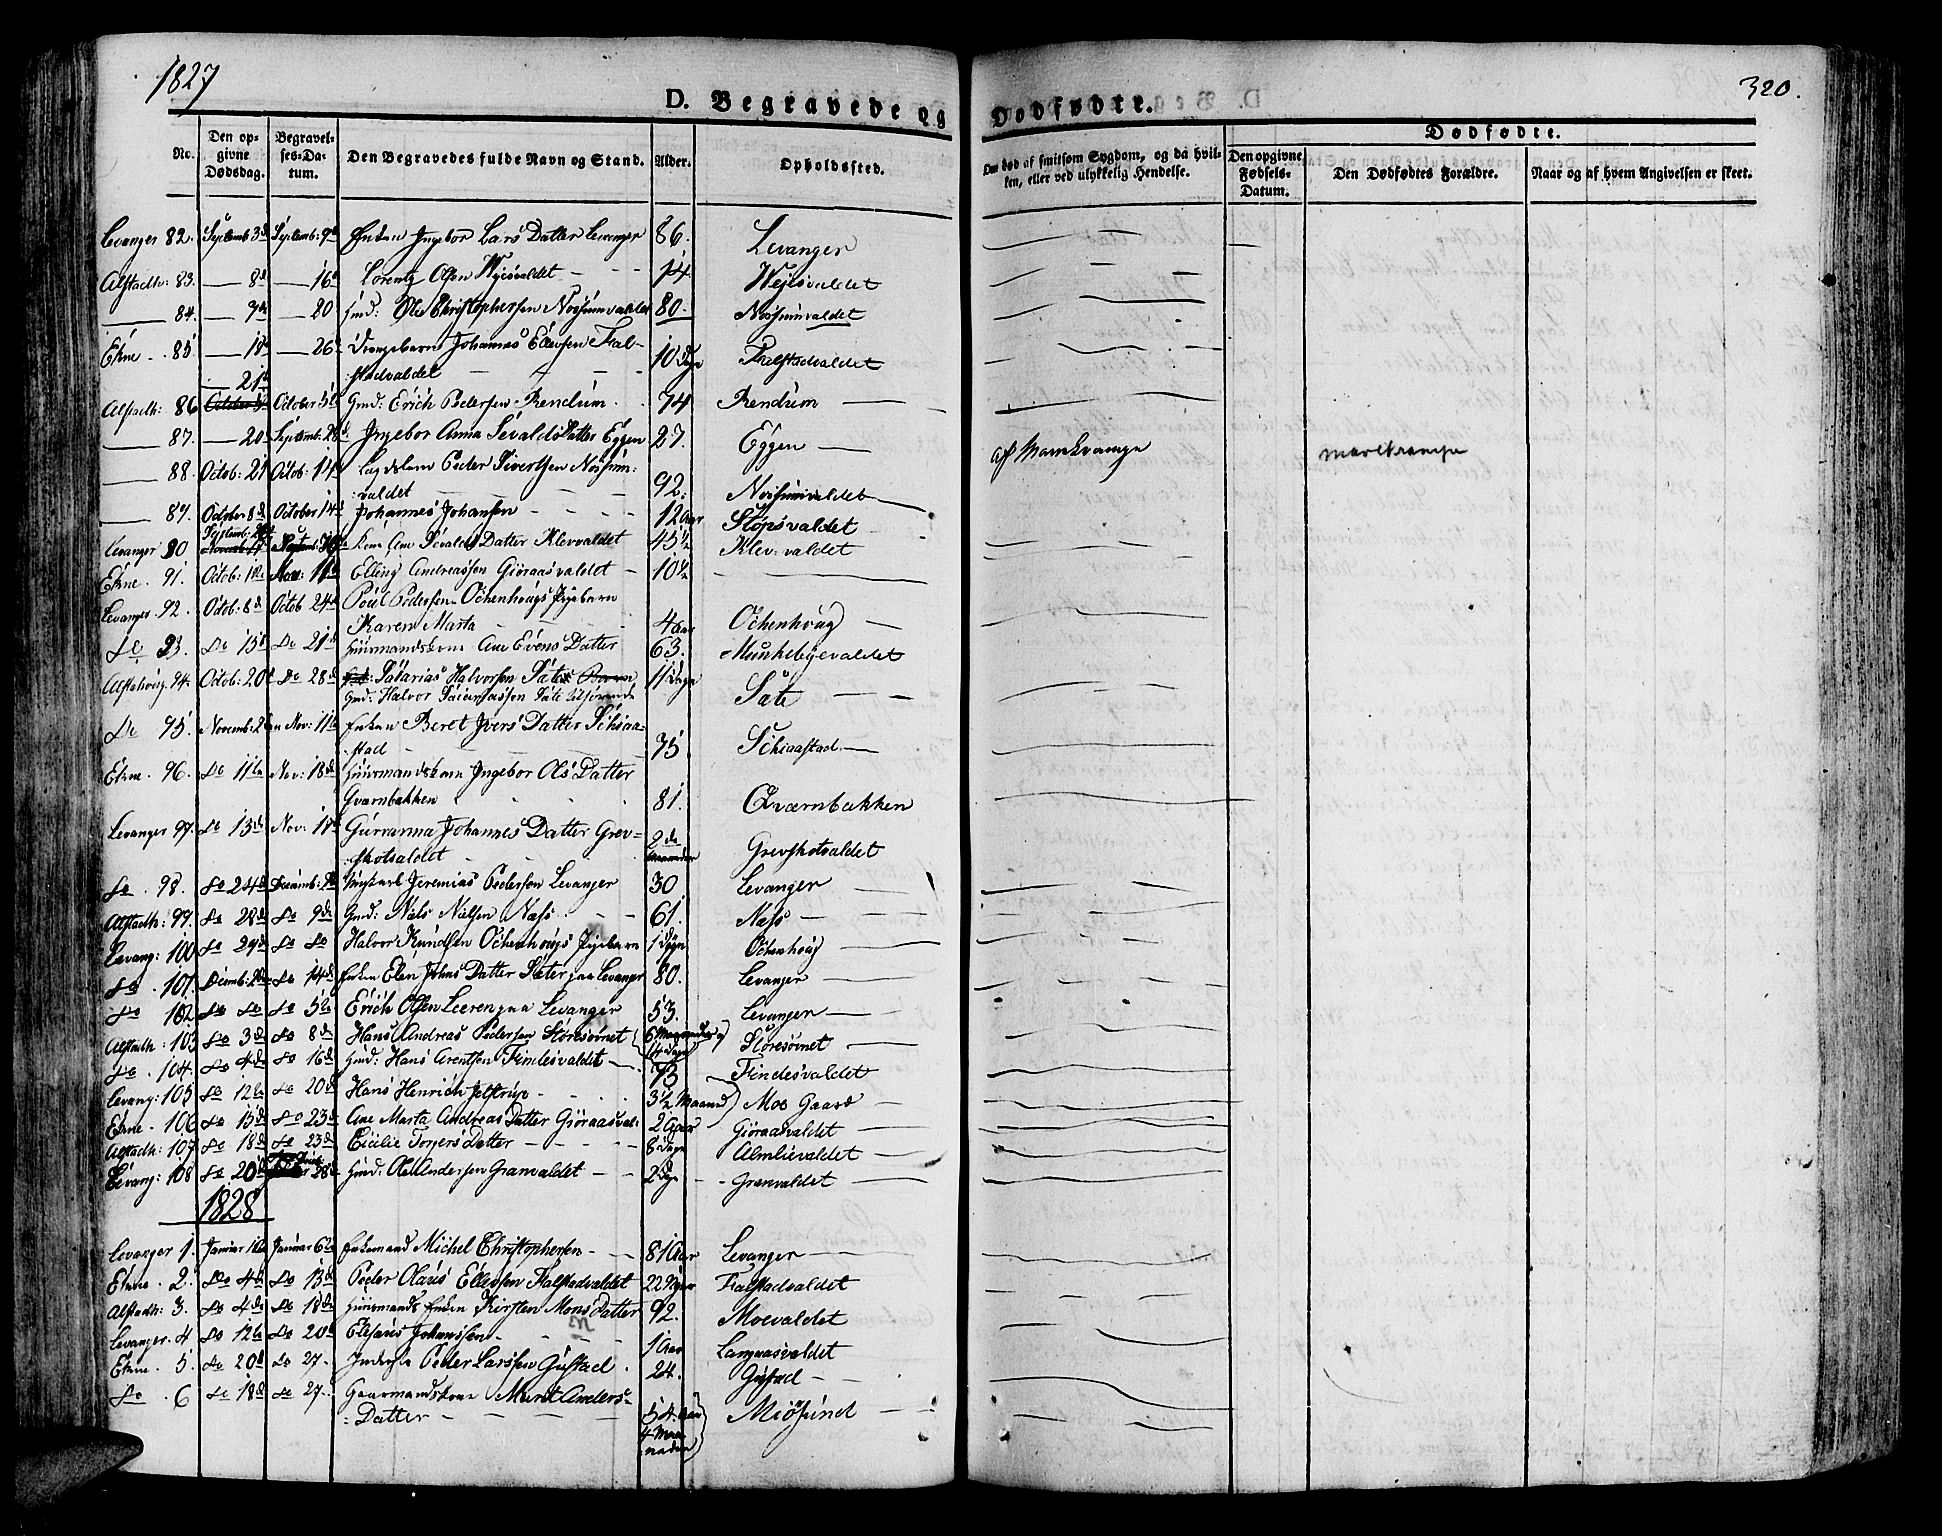 1827
320.
D. Begravede og Dødfødte.
Dødfødte.
No.
Den opgivne Dødsdag.
Begravelses-Datum.
Den Begravedes fulde Navn og Stand.
Alder.
Opholdssted.
Om død af smitsom Sygdom, og da hvilken, eller ved ulykkelig Hendelse.
Den opgivne Fødsels-Datum.
Den Dødfødtes Forældre.
Naar og af hvem Angivelsen er skeet.
Levanger 82. Septemb 3d Septemb: 9d Enken Ingebor Lars Datter Levanger 86. Levanger
Alstadh: 83. — 8d — 16d Lorentz Olsen Wejesvaldet — 14. Wejesvaldet
— 84. — 7de — 20 Gmd: Ole Christophersen 80. Nossumvaldet
Ekne . 85 — 18d — 26d Drengebarn Johannes Ellevsen Fal-
stadvaldet — 10 Dage Falstadvaldet
— 21d
Alstadh: 86 October 5te Gmd: Erich Pedersen Rendum . 74 Rendum —
— 87. — 20d Septemb: 28d Ingebor Anna Sevalds Datter Eggen 27. Eggen —
— 88. Octob: 21 Octob: 14 Peder Sivertsen Nossum-
valdet — 92. Nossumvaldet —
— 89. October 8d October 14d Johannes Johansen — 12 Aar Stopsvaldet
Levanger 90 Sevalds Datter Klevvaldet 45½ Klev: valdet
Ekne . 91. Octob: Nov: 11te Elling Andreassen Gioraasvaldet — 10½ —
Levanger 92. Octob: 8d Octob 24d Poul Pedersen Ochenhougs Pigebarn
Karen Marta — 4 Aar Ochenhoug —
Do 93. Do 15d Do 21d Huusmandskone Ane Evens Datter 63. Munkebyevaldet
Alstahoug 94. Octob: 20d Do 28d Halvorsen 11 Dage
Gmd: Halvor Sate Sate
Do 95. Novemb: 2den Nov: 11te Enken Beret Ivers Datter Schiaa-
stad — 75 Schiaastad —
Ekne . 96. Do 11te Nov: 18de Huusmandskone Ingebor Ols Datter
Qvarnbakken 81. Qværnbakken
Levanger 97. Do 13de Nov: 18d Gurranna Johannes Datter Grev-
skotvaldet — 2de Grevskotvaldet
Do . 98. Do 24de Decemb: Jeremias Pedersen Levanger 30 Levanger —
Alstadh: 99. Do 28de Do 9de Gmd: Niels Nielsen Næss . 61. Næss —
Levang: 100 Do 29de Do Do Halvor Knudsen Ochenhougs Pigebarn 1 Døgn Ochenhoug —
Do . 101. Decemb: 2den Do 14de Enken Elen Johns Datter Sæter paa Levanger 80. Levanger —
Do 102. Do Do Do 5te Erich Olsen Leeren paa Levanger 53. Levanger —
Alstadh: 103 Do 3de Do 8de Hans Andreas Pedersen Storesøvnet 6 Maaneder og 14 Dage Storesøvnet —
Do . 104. Do 4de Do 16de Gmd: Hans Arentsen Findesvaldet — 73 Findesvaldet
Levang: 105 Do 12te Do 20de Hans Henrich Jelstrup — 3½ Maaned Moe Gaard —
Ekne . 106 Do 15de Do 23de Ane Marta Andreas Datter Gioraasval: 2 Aar Gioraasvaldet —
Alstadh: 107 Do 18de Do 23de Cicilie Torgers Datter — 8 Dage Almlievaldet —
Levang: 108 Do 20de 28de Gmd: Ole Andersen Granvaldet — 2 Dge Granvaldet —
1828
Levanger 1. Januar 1ste Januar 6te Enkemand Michel Christophersen — 81 Aar Levanger —
Ekne . 2. Do 4de Do 13de Peder Olaus Ellevsen Falstadvaldet 22 Falstadvaldet
Alstadh: 3. Do 4de Do 18de Huusmands Enken Kirsten Mons Datter 92. Moevaldet
Levanger . 4 Do 12te Do 20de Elesæus Johanssen — 1 Aar Langaasvaldet
Ekne . 5. Do 20de Do 27. Inderste Peder Larssen Gustad . 24. Gustad —
Do . 6 Do 18de Do 27. Gaarmandskone Marit Anders-
Datter — 54. Aar 4 Maaneder Miosund —
af Mavekrampe
mavekrampe
13